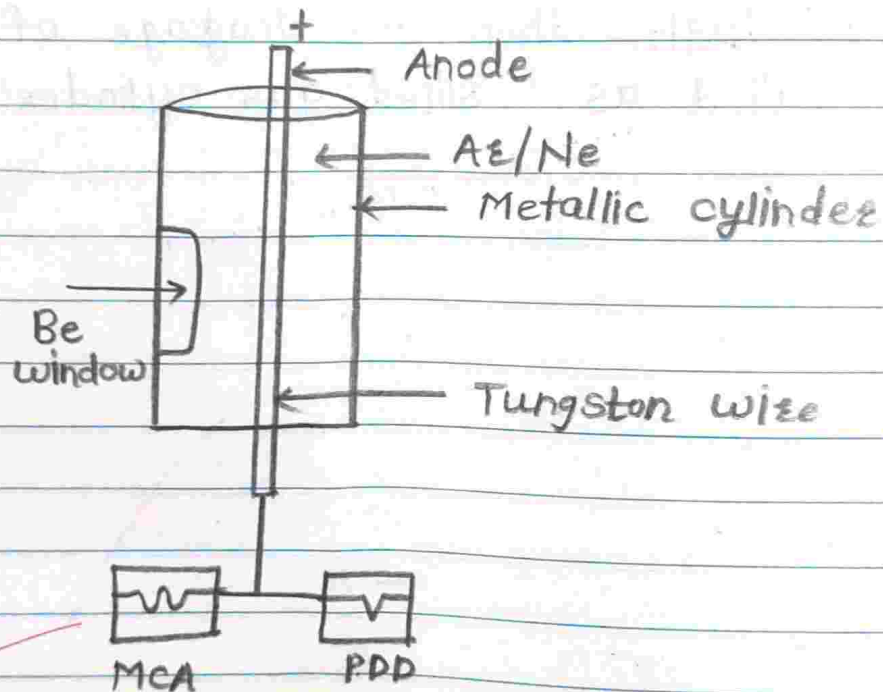 +
Anode
Ar/Ne
Metallic cylinder
Be
window
Tungston wire
MCA
PDD